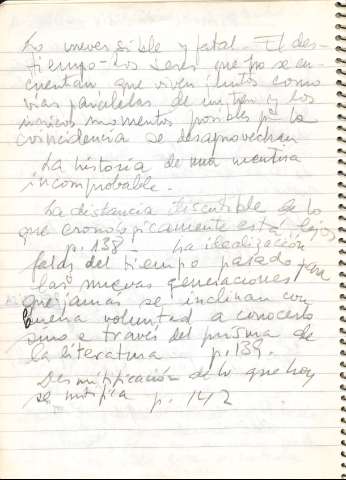 Lo irreversible y fatal - El des-
tiempo - los seres que no se en-
cuentan que viven juntos como
vías paralelas de un tren y los
únicos momentos posibles para la
coincidencia se desaprovechan
La historia de una mentira
incomprobable.
La distancia discutible de lo
que cronológicamente está lejos
p. 138 - La idealización
falaz del tiempo pasado para
las nuevas generaciones
que jamás se inclinan con
buena voluntad a conocerlo
sino a través del prisma de
la literatura p. 139.
Desmitificación de lo que hoy
se mitifica p. 142